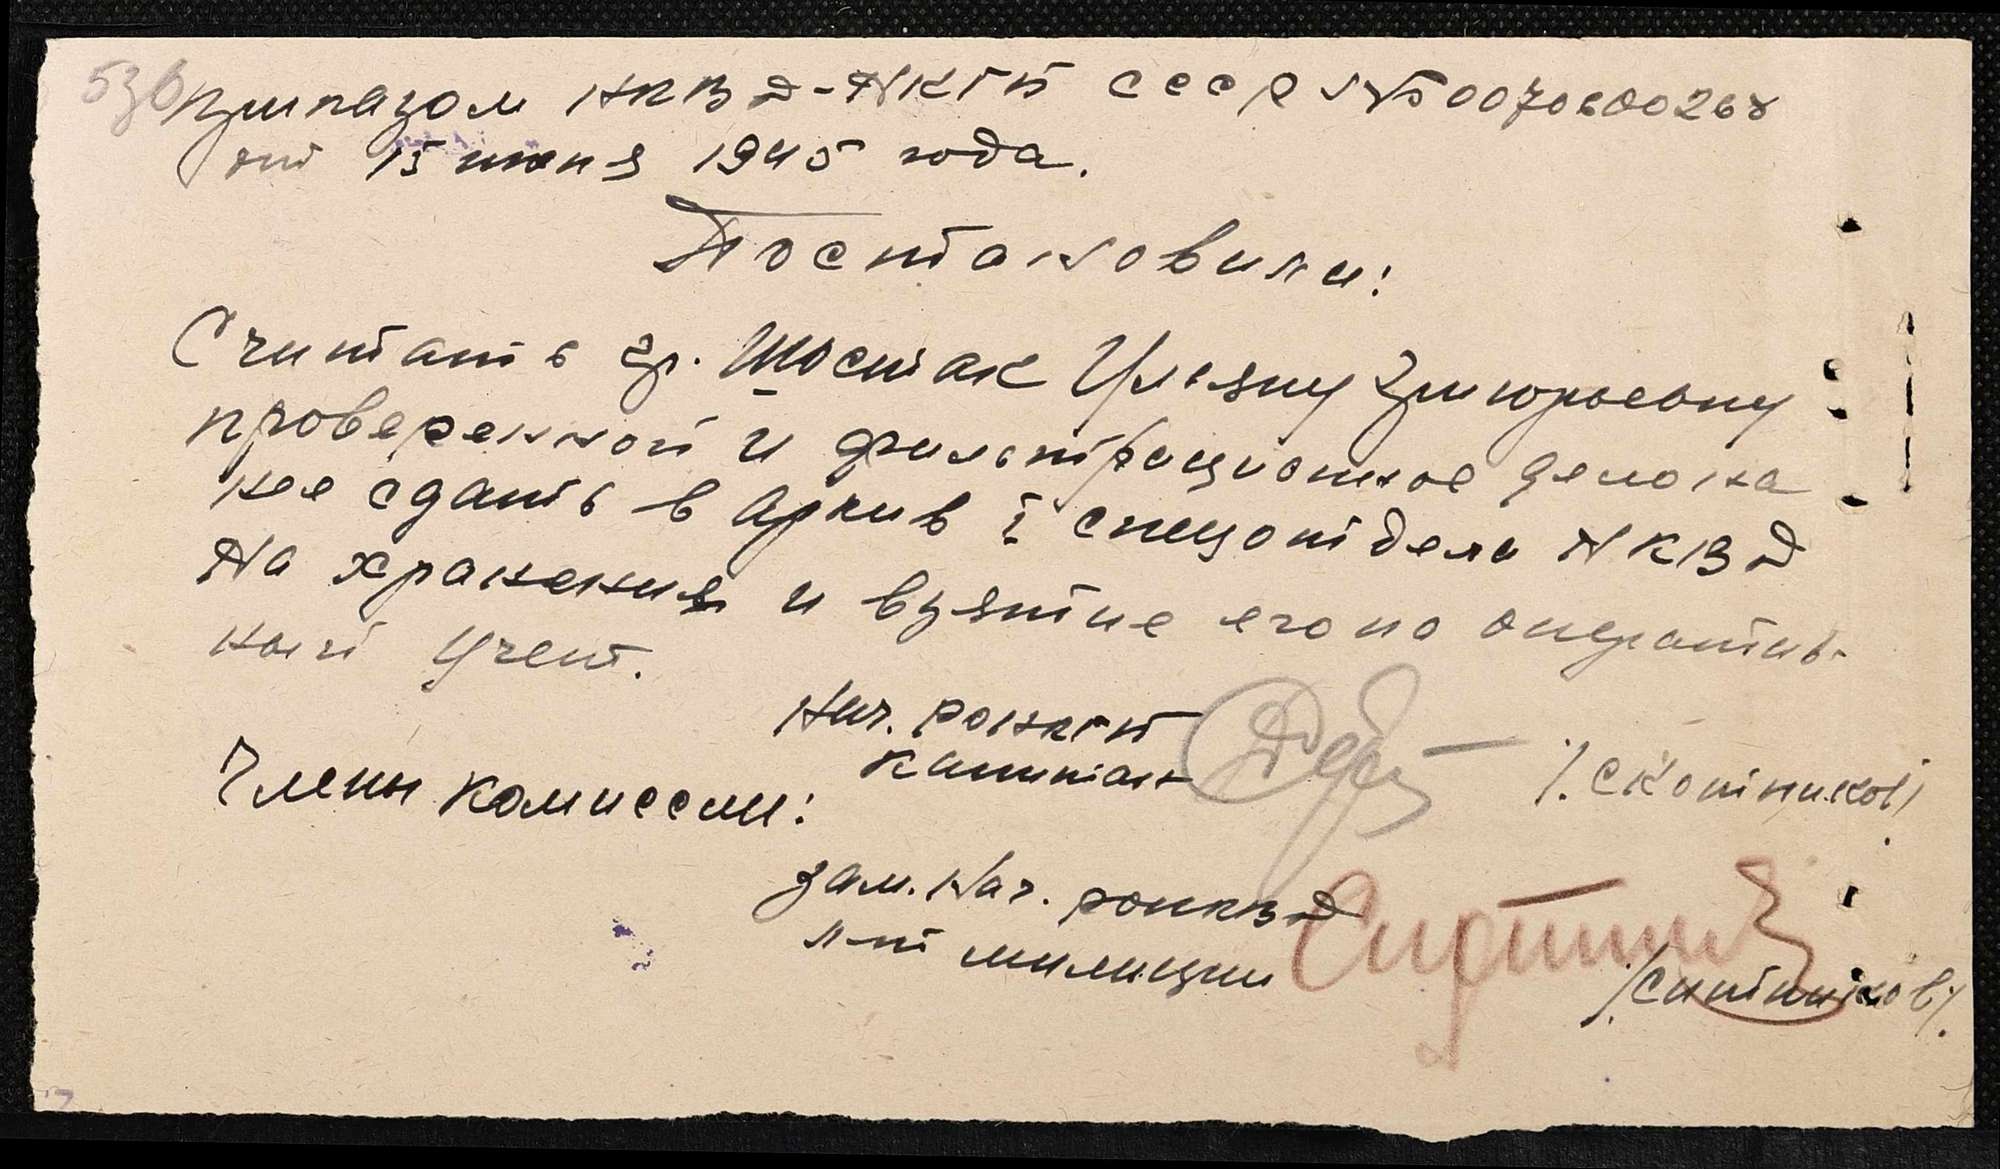 53в
Приказом НКВД-НКГБ СССР №00706/00268
от 15 июня 1945 года.
Постановили:
Считать гр. Шостак Ульяну Григорьевну
проверенной и фильтрационное дело на
нее сдать в архив I спецотдела НКВД
на хранения и взятие его на оператив-
ный учет.
Нач. РОНКГБ
капитан /Скотников/
Члены комиссии:
Зам. Нач. РОНКВД
л-т милиции /Ситников/.